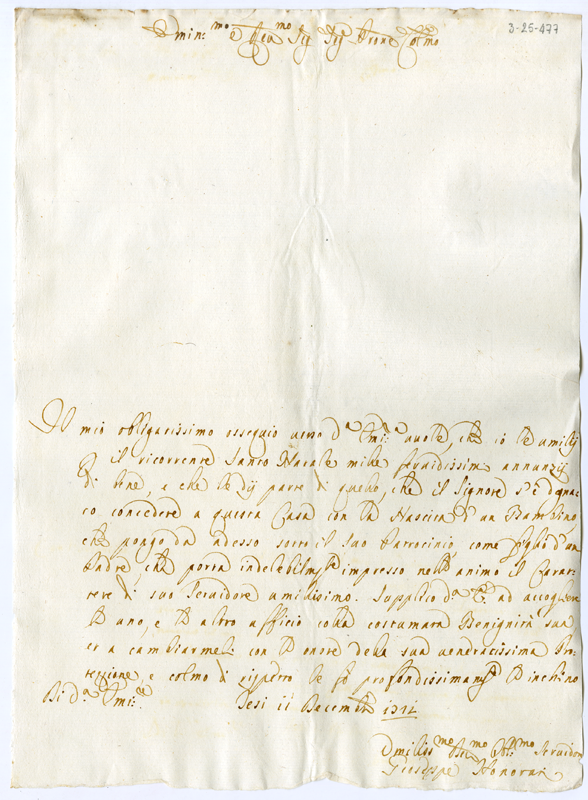 3-25-477
Emin:mo e Reu mo Sig Sig Prone Colmo
Il mio obligatissimo ossequio verso d'a Em:a vuole, che io le umilij
il ricorrente Santo Natale mille feruidissimi annunzij
di bene, e che le dij parte di quello, che il Signore s'è degna
to concedere a questa Casa con la Nascita d'un Bambino
che pongo da adesso sotto il suo Patrocinio come figlio d'un
Padre, che porta indelebilmte impresso nell' animo il Carat:
tere di suo Seruidore umilissimo. Supplico ad accogliere
l' uno, e l' altro ufficio colla costumata Benignità sua
et a cambiarmeli con l' onore della sua venératissima Pro:
tezzione, e colmo di rispetto le fo profondissimamte l' inchino
Di Em:
Jesi 11 Decemb
Umiliss mo Seruidor
Giuseppe Honorati